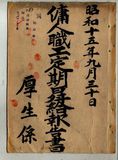 昭和十五年九月三十日
傭人職工定期昇給報告書
厚生係